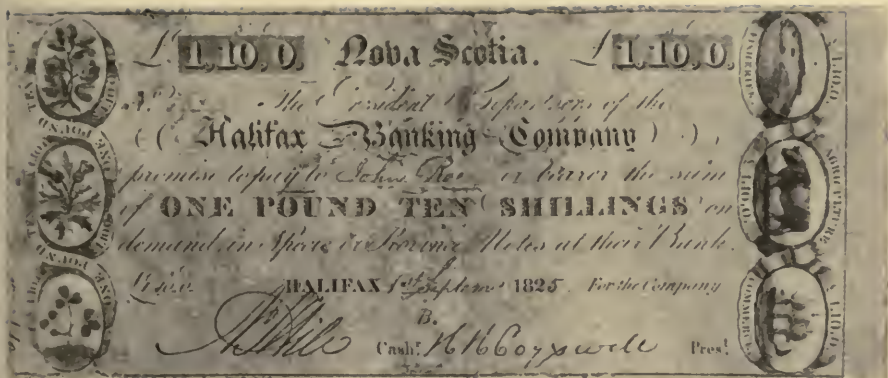 £ 1,10,0, Nova Scotia. £ 1,10,0,
The President & Directors of the
Halifax Banking Company
promise to pay to John Roe or bearer the sum
of ONE POUND TEN SHILLINGS on
demand in Specie or Province Notes at their Bank.
HALIFAX 1st Septemr 1825 For the Company
B.
Cashr. H H Cogswell Prest.
FISHERIES
£ 1.10.0
AGRICULTURE
£ 1.10.0
COMMERCE
£ 1.10.0